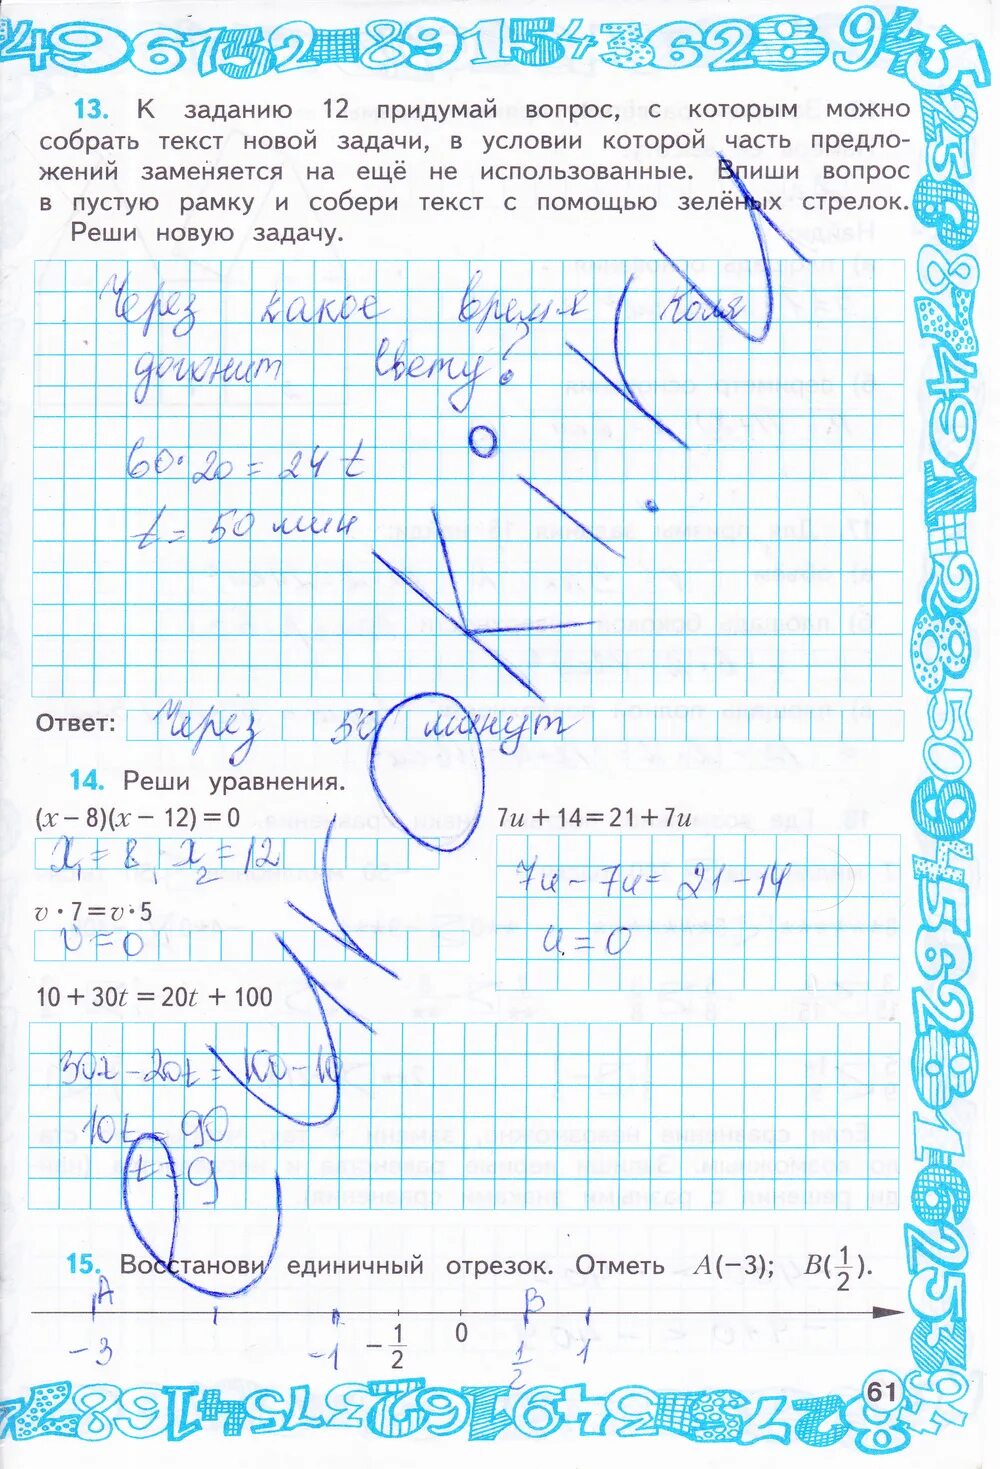 13. К заданию 12 придумай вопрос, с которым можно
собрать текст новой задачи, в условии которой часть предло-
жений заменяется на ещё не использованные. Впиши вопрос
в пустую рамку и собери текст с помощью зелёных стрелок.
Реши новую задачу.
Через какое время Коля
догонит Свету?
60·20 = 24 t
t = 50 мин
Ответ: Через 50 минут
14. Реши уравнения.
(x – 8)(x – 12) = 0
x₁ = 8, x₂ = 12
v · 7 = v · 5
v = 0
7u + 14 = 21 + 7u
7u – 7u = 21 – 14
u = 0
10 + 30t = 20t + 100
30t – 20t = 100 – 10
10t = 90
t = 9
15. Восстанови единичный отрезок. Отметь A(–3); B(1/2).
A B
–3 –1 –1/2 0 1/2 1
61